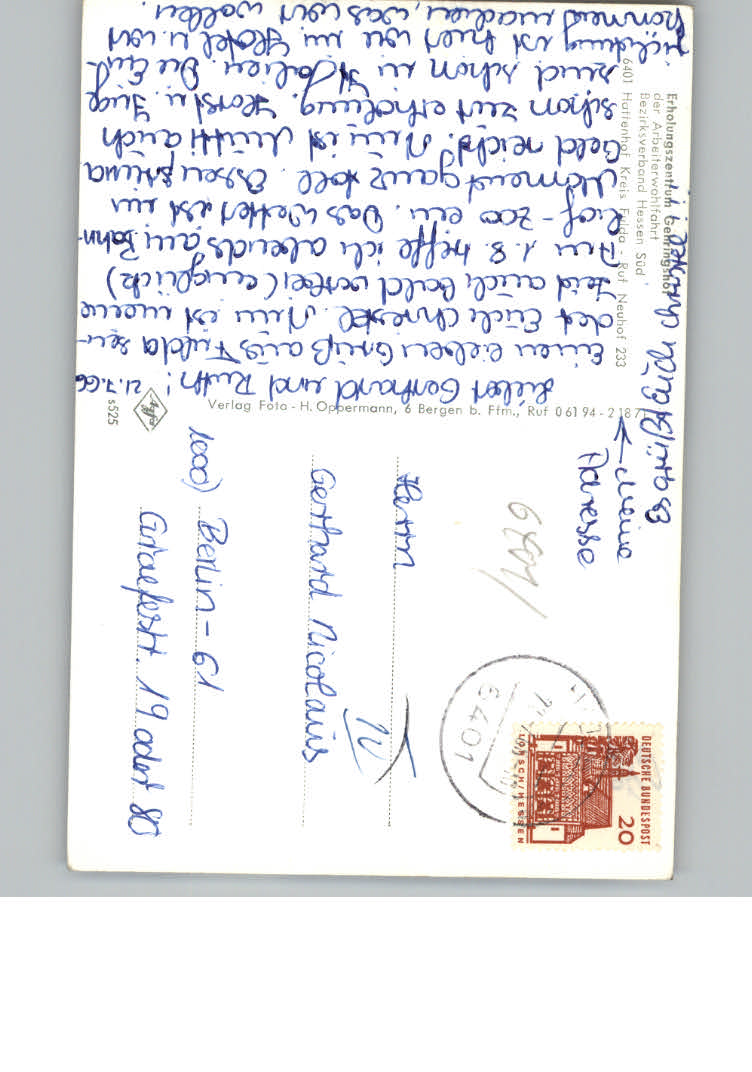 Erholungszentrum Gehringshof
der Arbeiterwohlfahrt
Bezirksverband Hessen Süd
6401 Hattenhof Kreis Fulda - Ruf Neuhof 233
Lieber Gerhard und Ruth! 21.7.66
Einen lieben Gruß aus Fulda sen-
det Euch Christel. Nun ist meine
Zeit auch bald vorbei (unglück)
Am 1. 8. treffe ich abends am Bahn-
hof - Zoo ein. Das Wetter ist im
Moment ganz toll. Essen prima
Geld reicht. Nun ist Mutti auch
schon zur Erholung. Horst u. Inge
sind schon in Italien. Die Ein-
richtung ist hier wie im Hotel u. wir
können machen, was wir wollen.
Christel
← Meine
Adresse
Verlag Foto - H. Oppermann, 6 Bergen b. Ffm., Ruf 0 61 94 - 2 187
Agfa
s525
6401
DEUTSCHE BUNDESPOST
20
LORSCH/HESSEN
6401
Herrn
Gerhard Nicolaus
1000) Berlin - 61
Graefestr. 19 oder 80